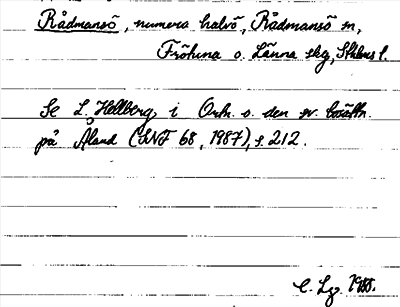 Rådmansö, numera halvö, Rådmansö sn,
Frötuna o. Länna skg, Sthlms l.
Se L. Hellberg, i Ortn. o. den sv. bosättn.
på Åland (SNF 68, 1987), s. 212.
C. Lg. 1988.